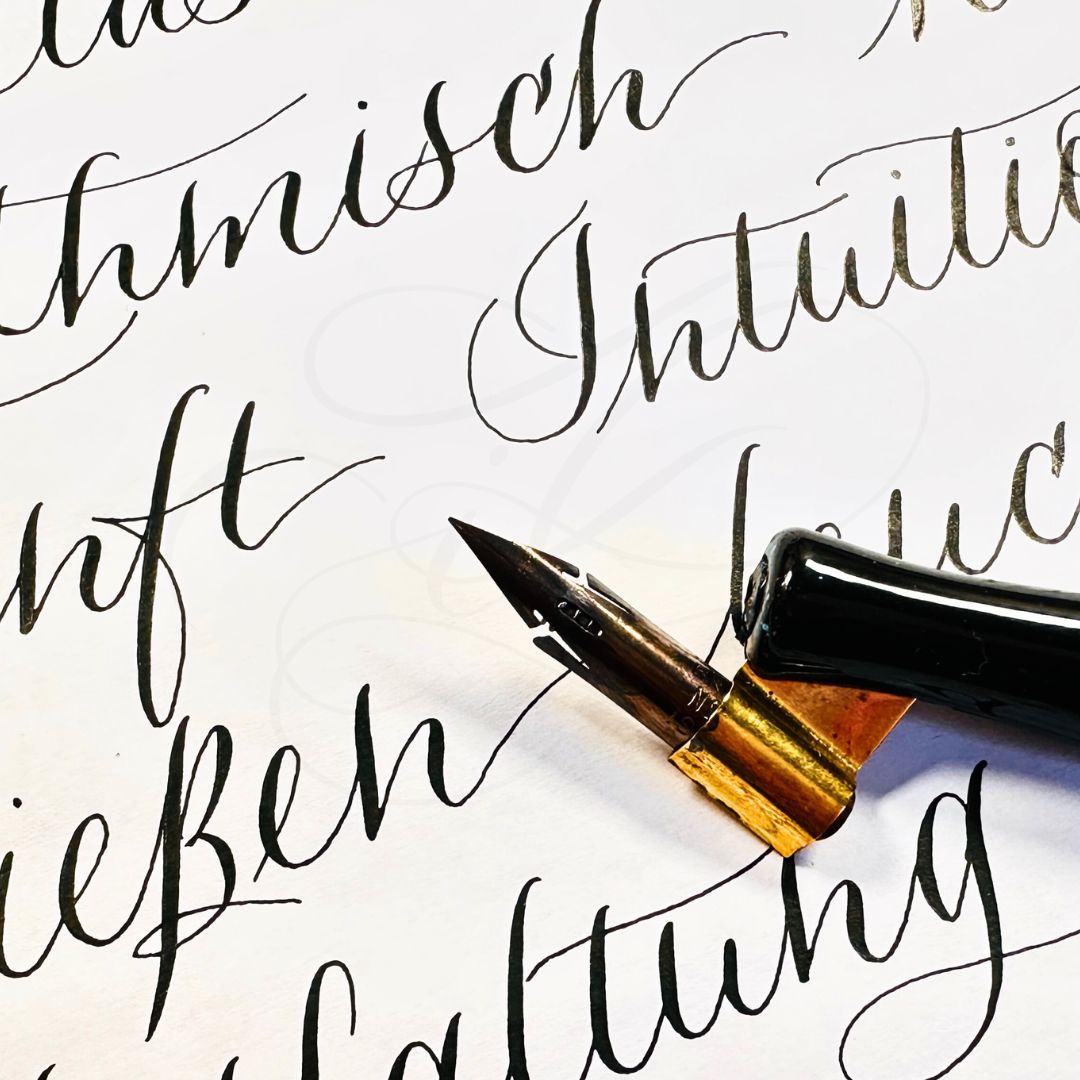 thmisch
Intuitio
nft
ießen
faltung